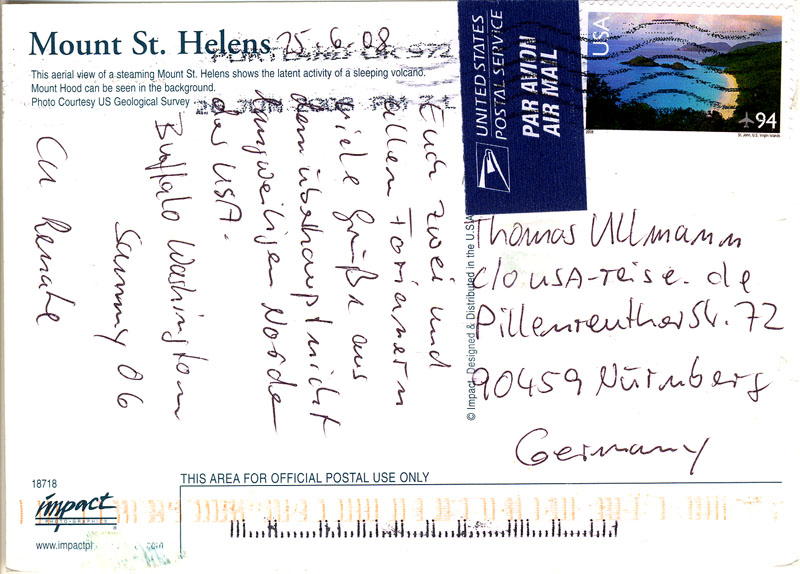 Mount St. Helens
25.6.08
This aerial view of a steaming Mount St. Helens shows the latent activity of a sleeping volcano.
Mount Hood can be seen in the background.
Photo Courtesy US Geological Survey
PORTLAND OR 972
UNITED STATES
POSTAL SERVICE
PAR AVION
AIR MAIL
USA
94
2008
St. John, U.S. Virgin Islands
Euch zwei und
allen
viele Grüße aus
dem überhaupt nicht
langweiligen Norden
des USA.
Buffalo Washington
Sammy 06
CU Renate
© Impact Designed & Distributed in the U.S.A.
Thomas Ullmann
c/o USA-reise.de
Pillenreuther Str. 72
90459 Nürnberg
Germany
18718
impact
PHOTO-GRAPHICS
www.impactp
.com
THIS AREA FOR OFFICIAL POSTAL USE ONLY